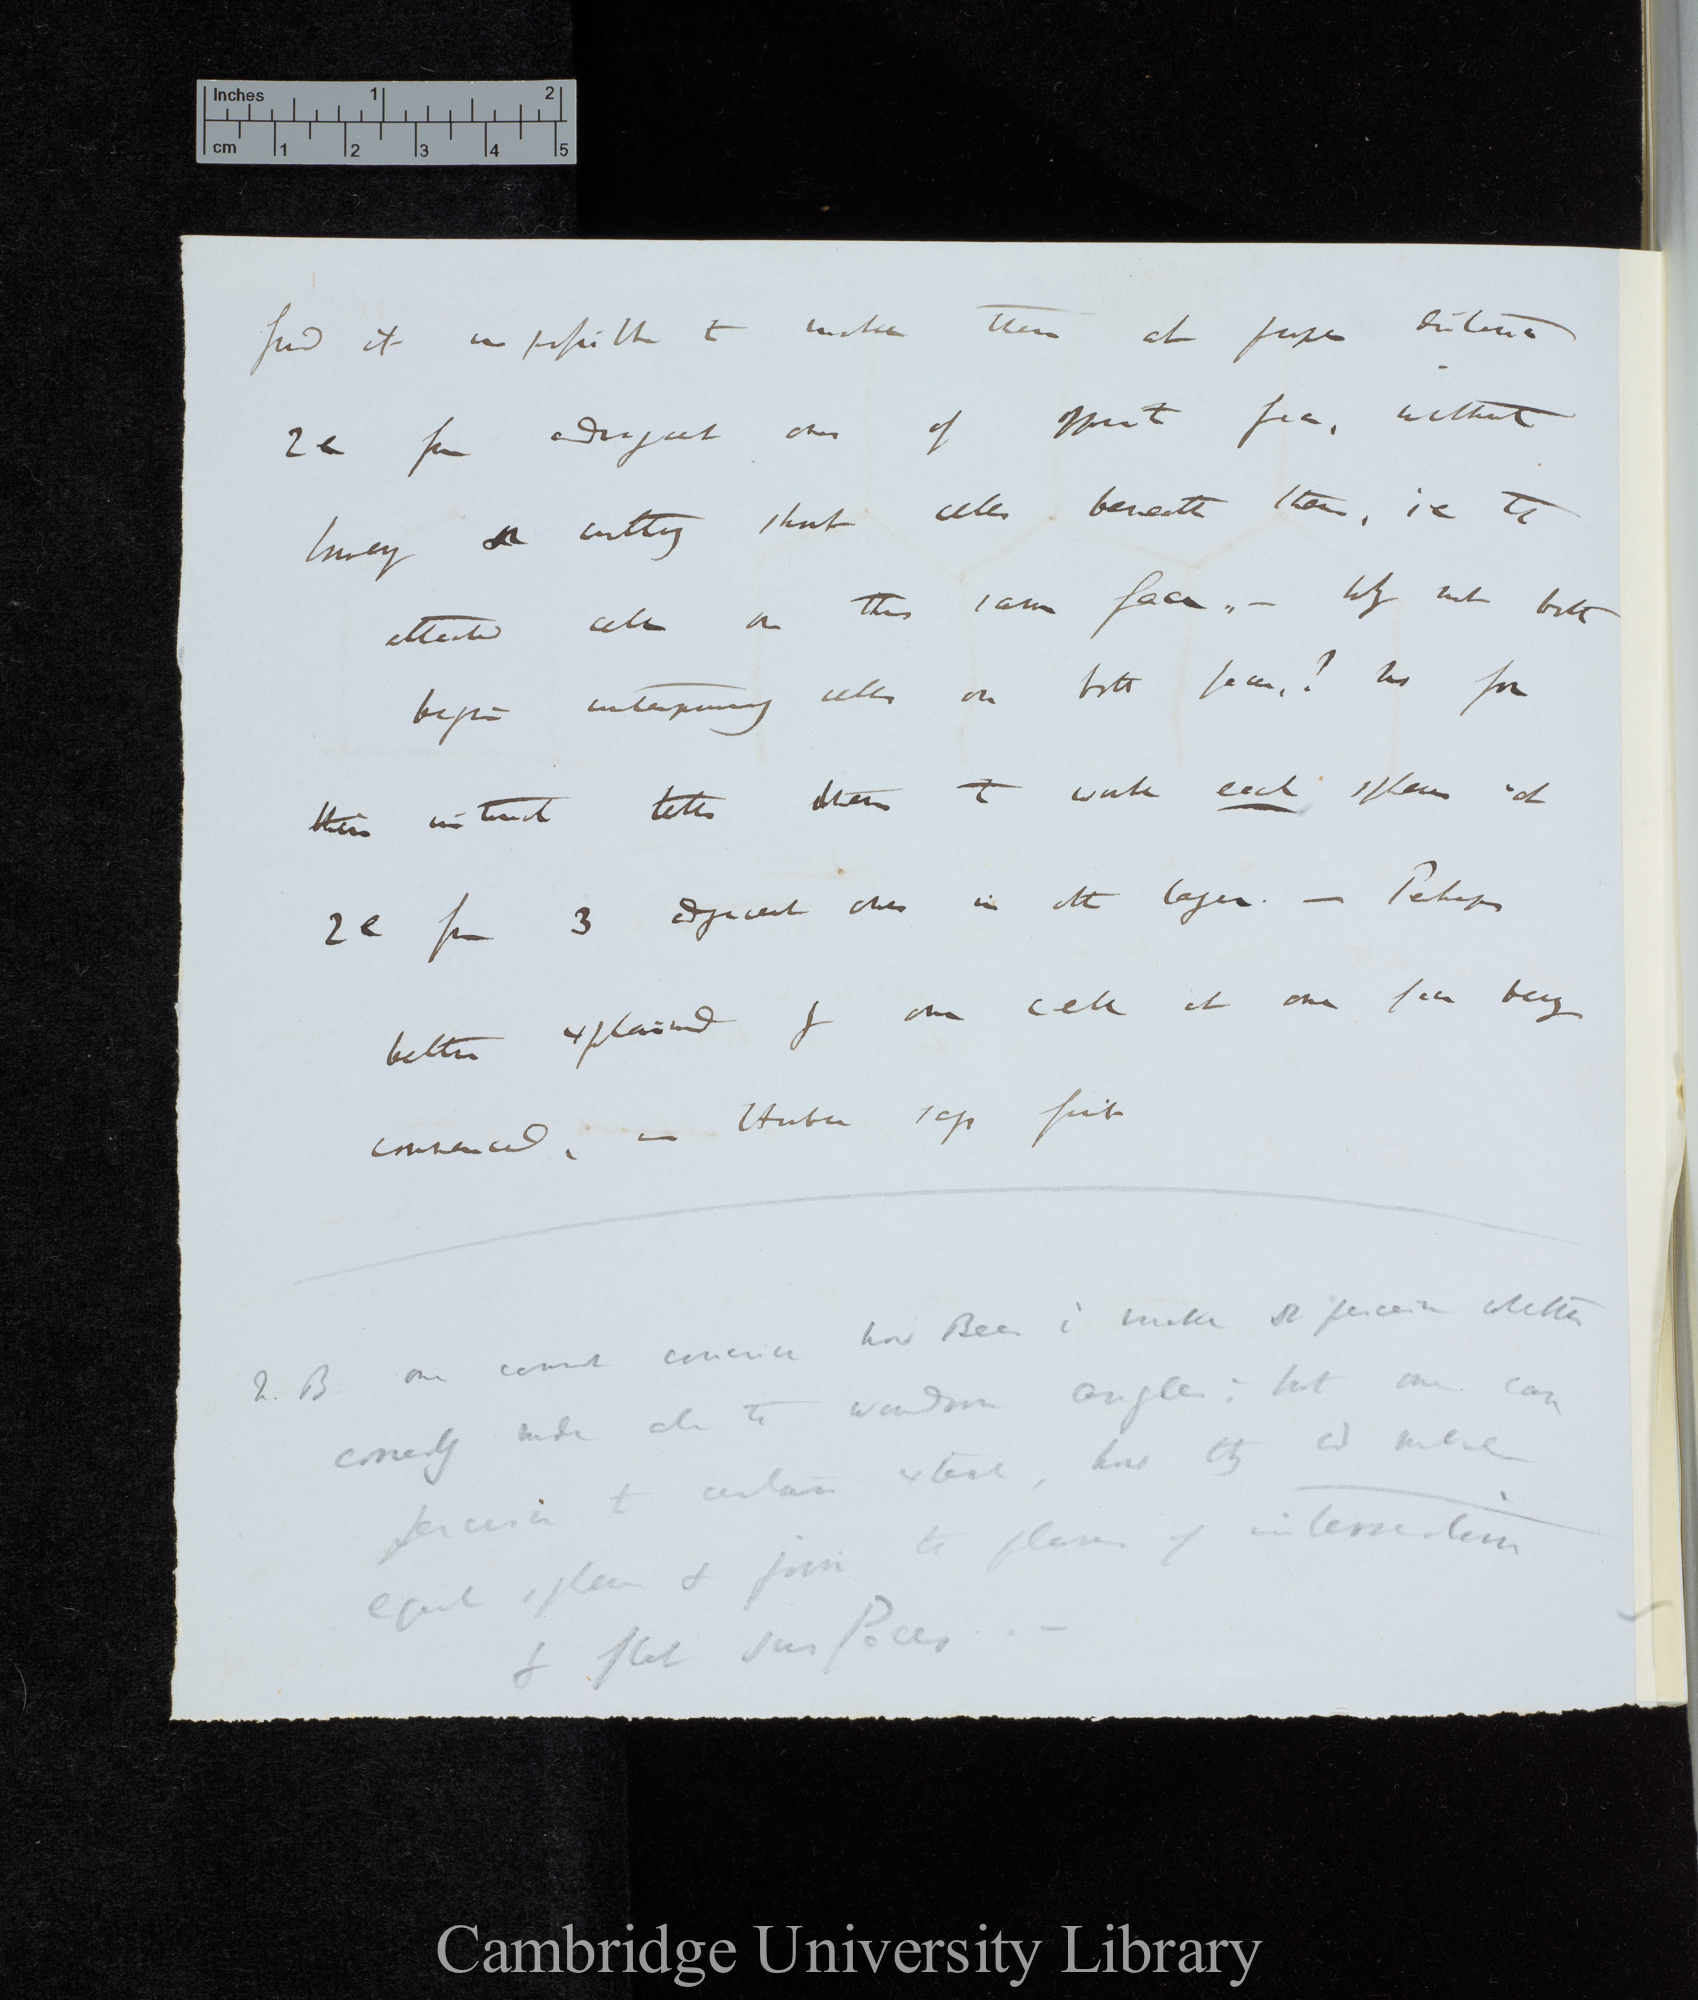 Inches 1 2
cm 1 2 3 4 5
find it impossible to make them at proper distance
2 c from adjacent ones of opposite face, without
boring or cutting short cells beneath them, i.e. the
attached cells on the same face. — Why not both
begin cells on both faces? No for
their instinct tells them to work each sphere at
2 c from 3 adjacent ones in other layer. — Perhaps
better explained by one cell at one face being
commenced, as Huber says first
N. B one cannot conceive how Bees make or perceive whether
correctly made all the wondrous angles; but one can
perceive to certain extent, how they cd make
equal spheres & join the planes of intersection
by flat surfaces. . —
Cambridge University Library